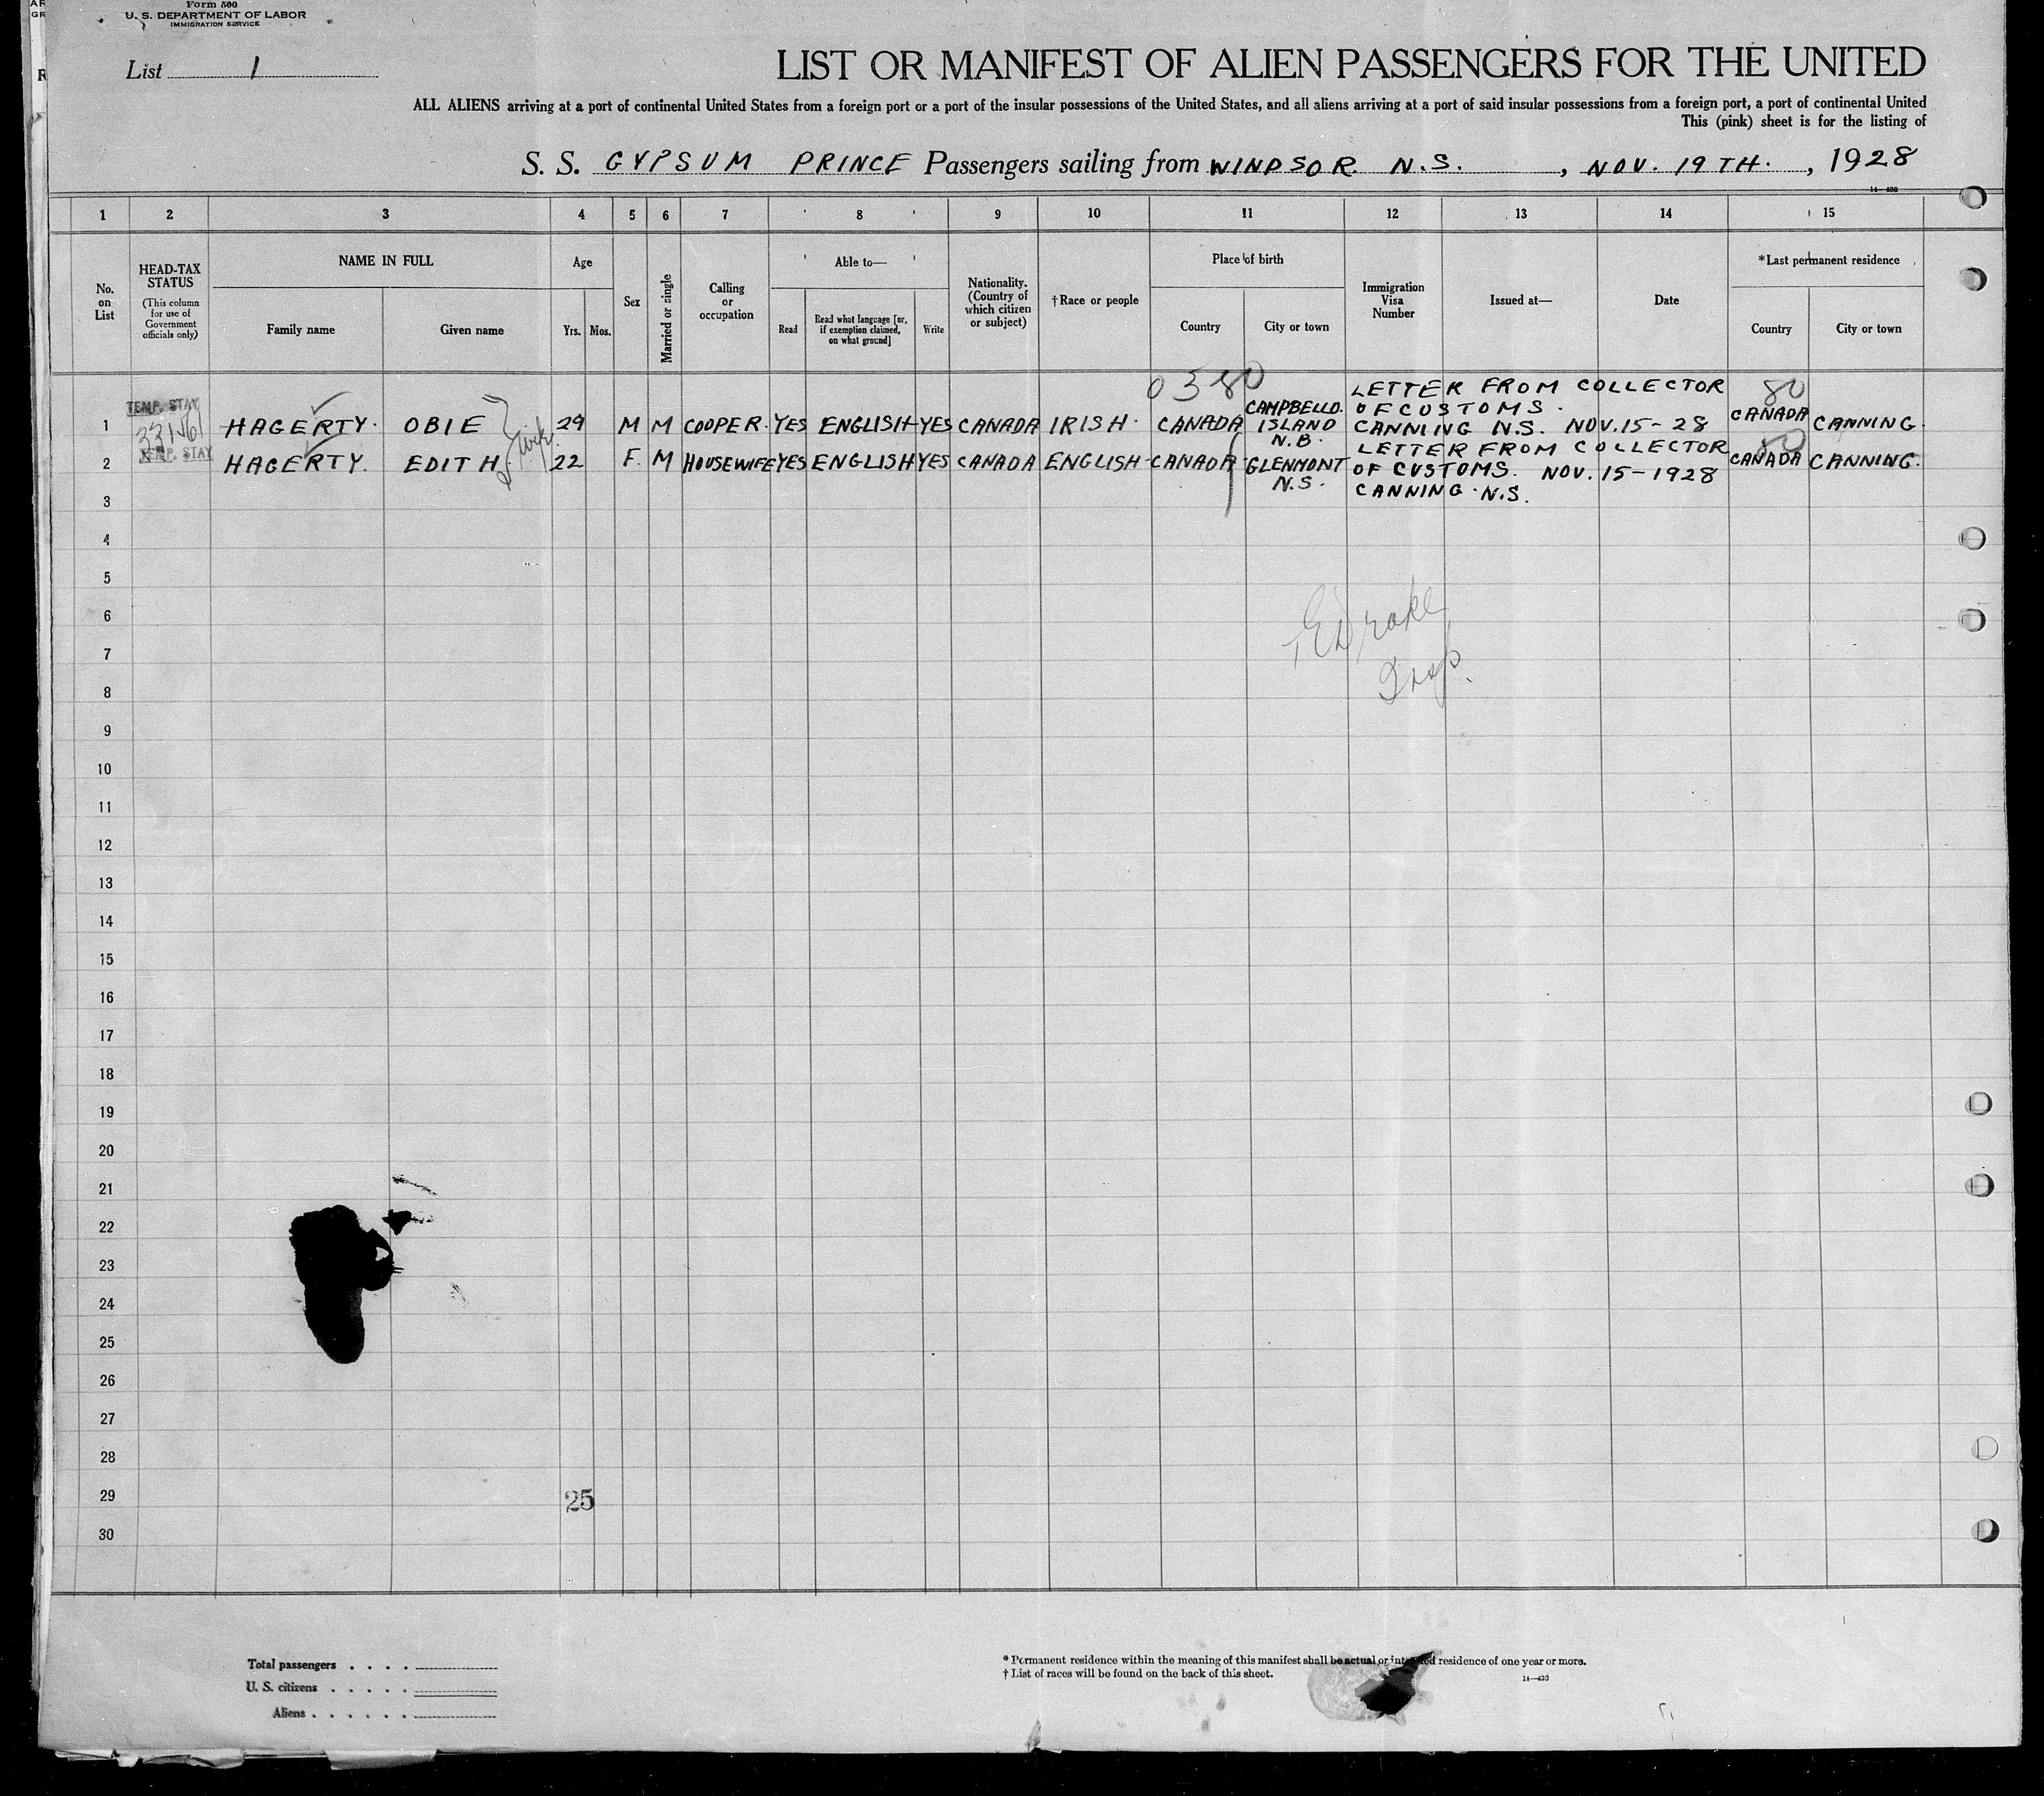 Form 500
U. S. DEPARTMENT OF LABOR
IMMIGRATION SERVICE
List 1
LIST OR MANIFEST OF ALIEN PASSENGERS FOR THE UNITED
ALL ALIENS arriving at a port of continental United States from a foreign port or a port of the insular possessions of the United States, and all aliens arriving at a port of said insular possessions from a foreign port, a port of continental United
This (pink) sheet is for the listing of
S. S. GYPSUM PRINCE Passengers sailing from WINDSOR. N.S. , NOV. 19TH. , 1928
14-430
1 2 3 4 5 6 7 8 9 10 11 12 13 14 15
No. on List
HEAD-TAX STATUS (This column for use of Government officials only)
NAME IN FULL
Family name
Given name
Age
Yrs. Mos.
Sex
Married or single
Calling or occupation
Able to—
Read
Read what language [or, if exemption claimed, on what ground]
Write
Nationality. (Country of which citizen or subject)
†Race or people
Place of birth
Country
City or town
Immigration Visa Number
Issued at—
Date
*Last permanent residence
Country
City or town
0 3 80
80
TEMP. STAY
1 HAGERTY. OBIE 29 M M COOPER. YES ENGLISH YES CANADA IRISH. CANADA CAMPBELLO. ISLAND N.B. LETTER FROM COLLECTOR OF CUSTOMS. CANNING N.S. NOV.15-28 CANADA CANNING.
TEMP. STAY
2 HAGERTY. EDITH. 22 F. M HOUSEWIFE YES ENGLISH YES CANADA ENGLISH CANADA GLENMONT N.S. LETTER FROM COLLECTOR OF CUSTOMS. NOV.15-1928 CANNING. N.S. CANADA CANNING.
3
4
5
6
7
8
9
10
11
12
13
14
15
16
17
18
19
20
21
22
23
24
25
26
27
28
29
25
30
Total passengers . . . .
U. S. citizens . . . . .
Aliens . . . . . .
* Permanent residence within the meaning of this manifest shall be actual or intended residence of one year or more.
† List of races will be found on the back of this sheet.
14-430